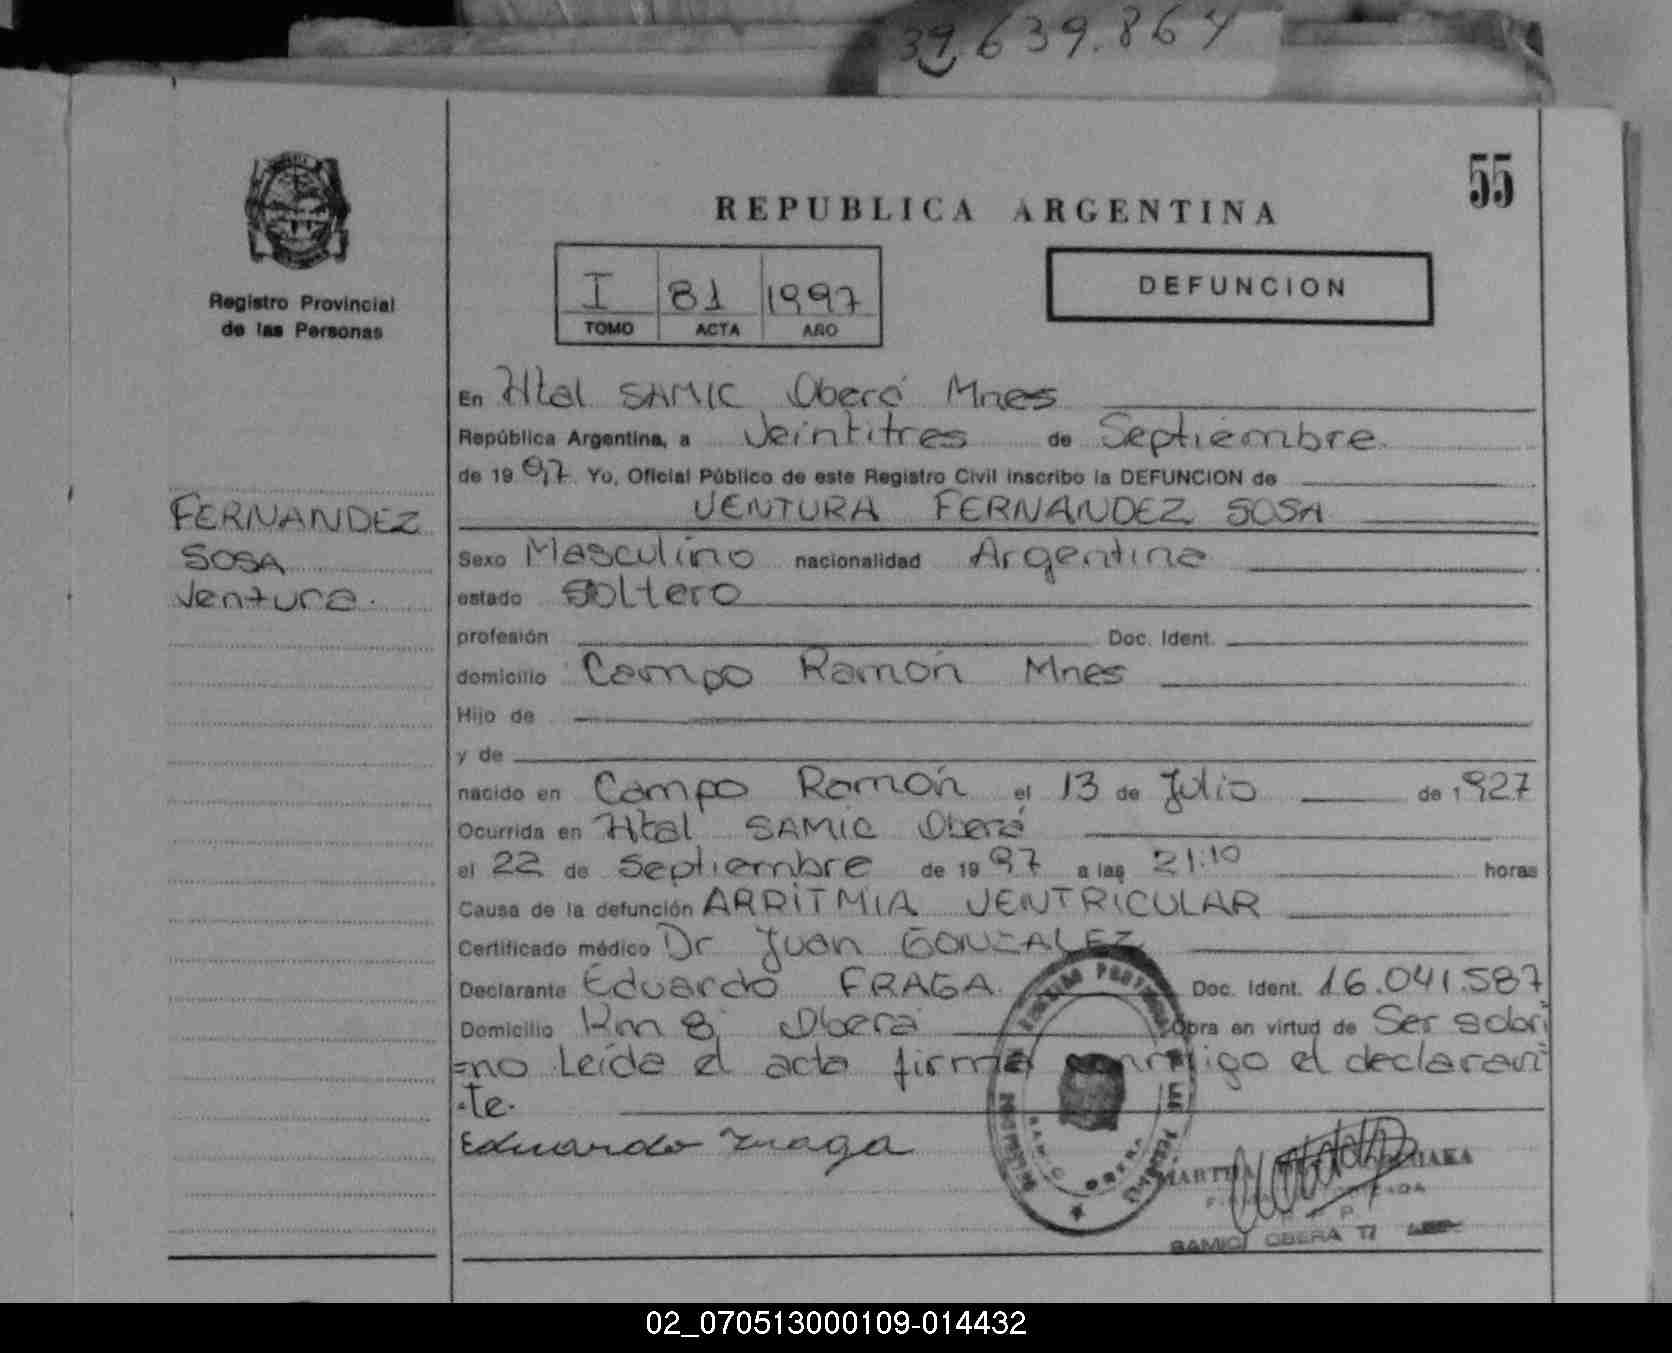 39.639.864
55
REPUBLICA ARGENTINA
Registro Provincial
de las Personas
I 81 1997
TOMO ACTA AÑO
DEFUNCION
En Htal SAMIC Oberá Mnes
República Argentina, a Veintitres de Septiembre
de 1997 Yo, Oficial Público de este Registro Civil inscribo la DEFUNCION de
VENTURA FERNANDEZ SOSA
FERNANDEZ
SOSA
Ventura.
Sexo Masculino nacionalidad Argentina
estado Soltero
profesión Doc. Ident.
domicilio Campo Ramón Mnes
Hijo de
y de
nacido en Campo Ramón el 13 de Julio de 1927
Ocurrida en Htal SAMIC Oberá
el 22 de Septiembre de 1997 a las 21:10 horas
Causa de la defunción ARRITMIA VENTRICULAR
Certificado médico Dr Juan GONZALEZ
Declarante Eduardo FRAGA Doc. Ident. 16.041.587
Domicilio Km 8 Oberá Obra en virtud de Ser sobri
=no Leída el acta firma conmigo el declaran
te.
Eduardo Fraga
MARTHA
SAMIC OBERA
02_070513000109-014432